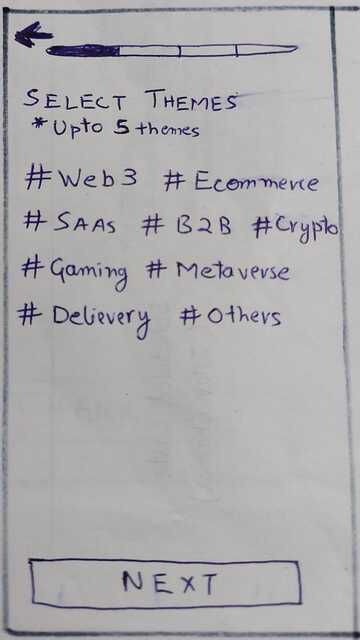 SELECT THEMES
* Upto 5 themes
#Web3 # Ecommerce
# SAAs # B2B #Crypto
# Gaming # Metaverse
# Delievery # Others
NEXT